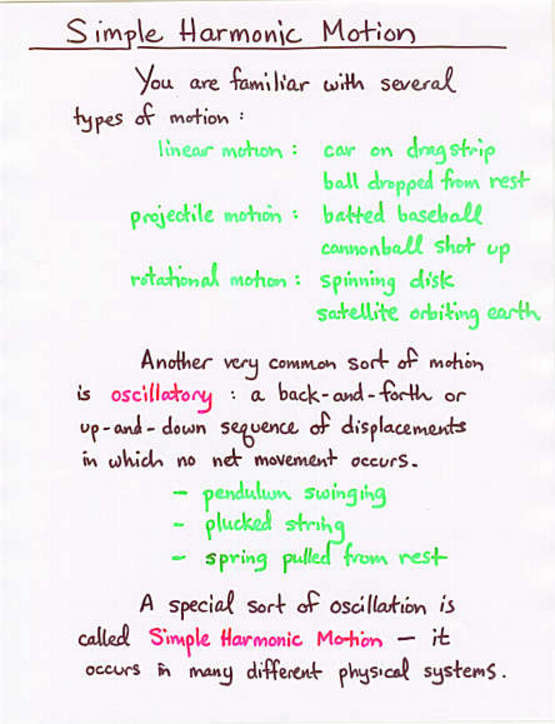 Simple Harmonic Motion
You are familiar with several
types of motion :
linear motion : car on dragstrip
ball dropped from rest
projectile motion : batted baseball
cannonball shot up
rotational motion : spinning disk
satellite orbiting earth
Another very common sort of motion
is oscillatory : a back-and-forth or
up-and-down sequence of displacements
in which no net movement occurs.
- pendulum swinging
- plucked string
- spring pulled from rest
A special sort of oscillation is
called Simple Harmonic Motion — it
occurs in many different physical systems.